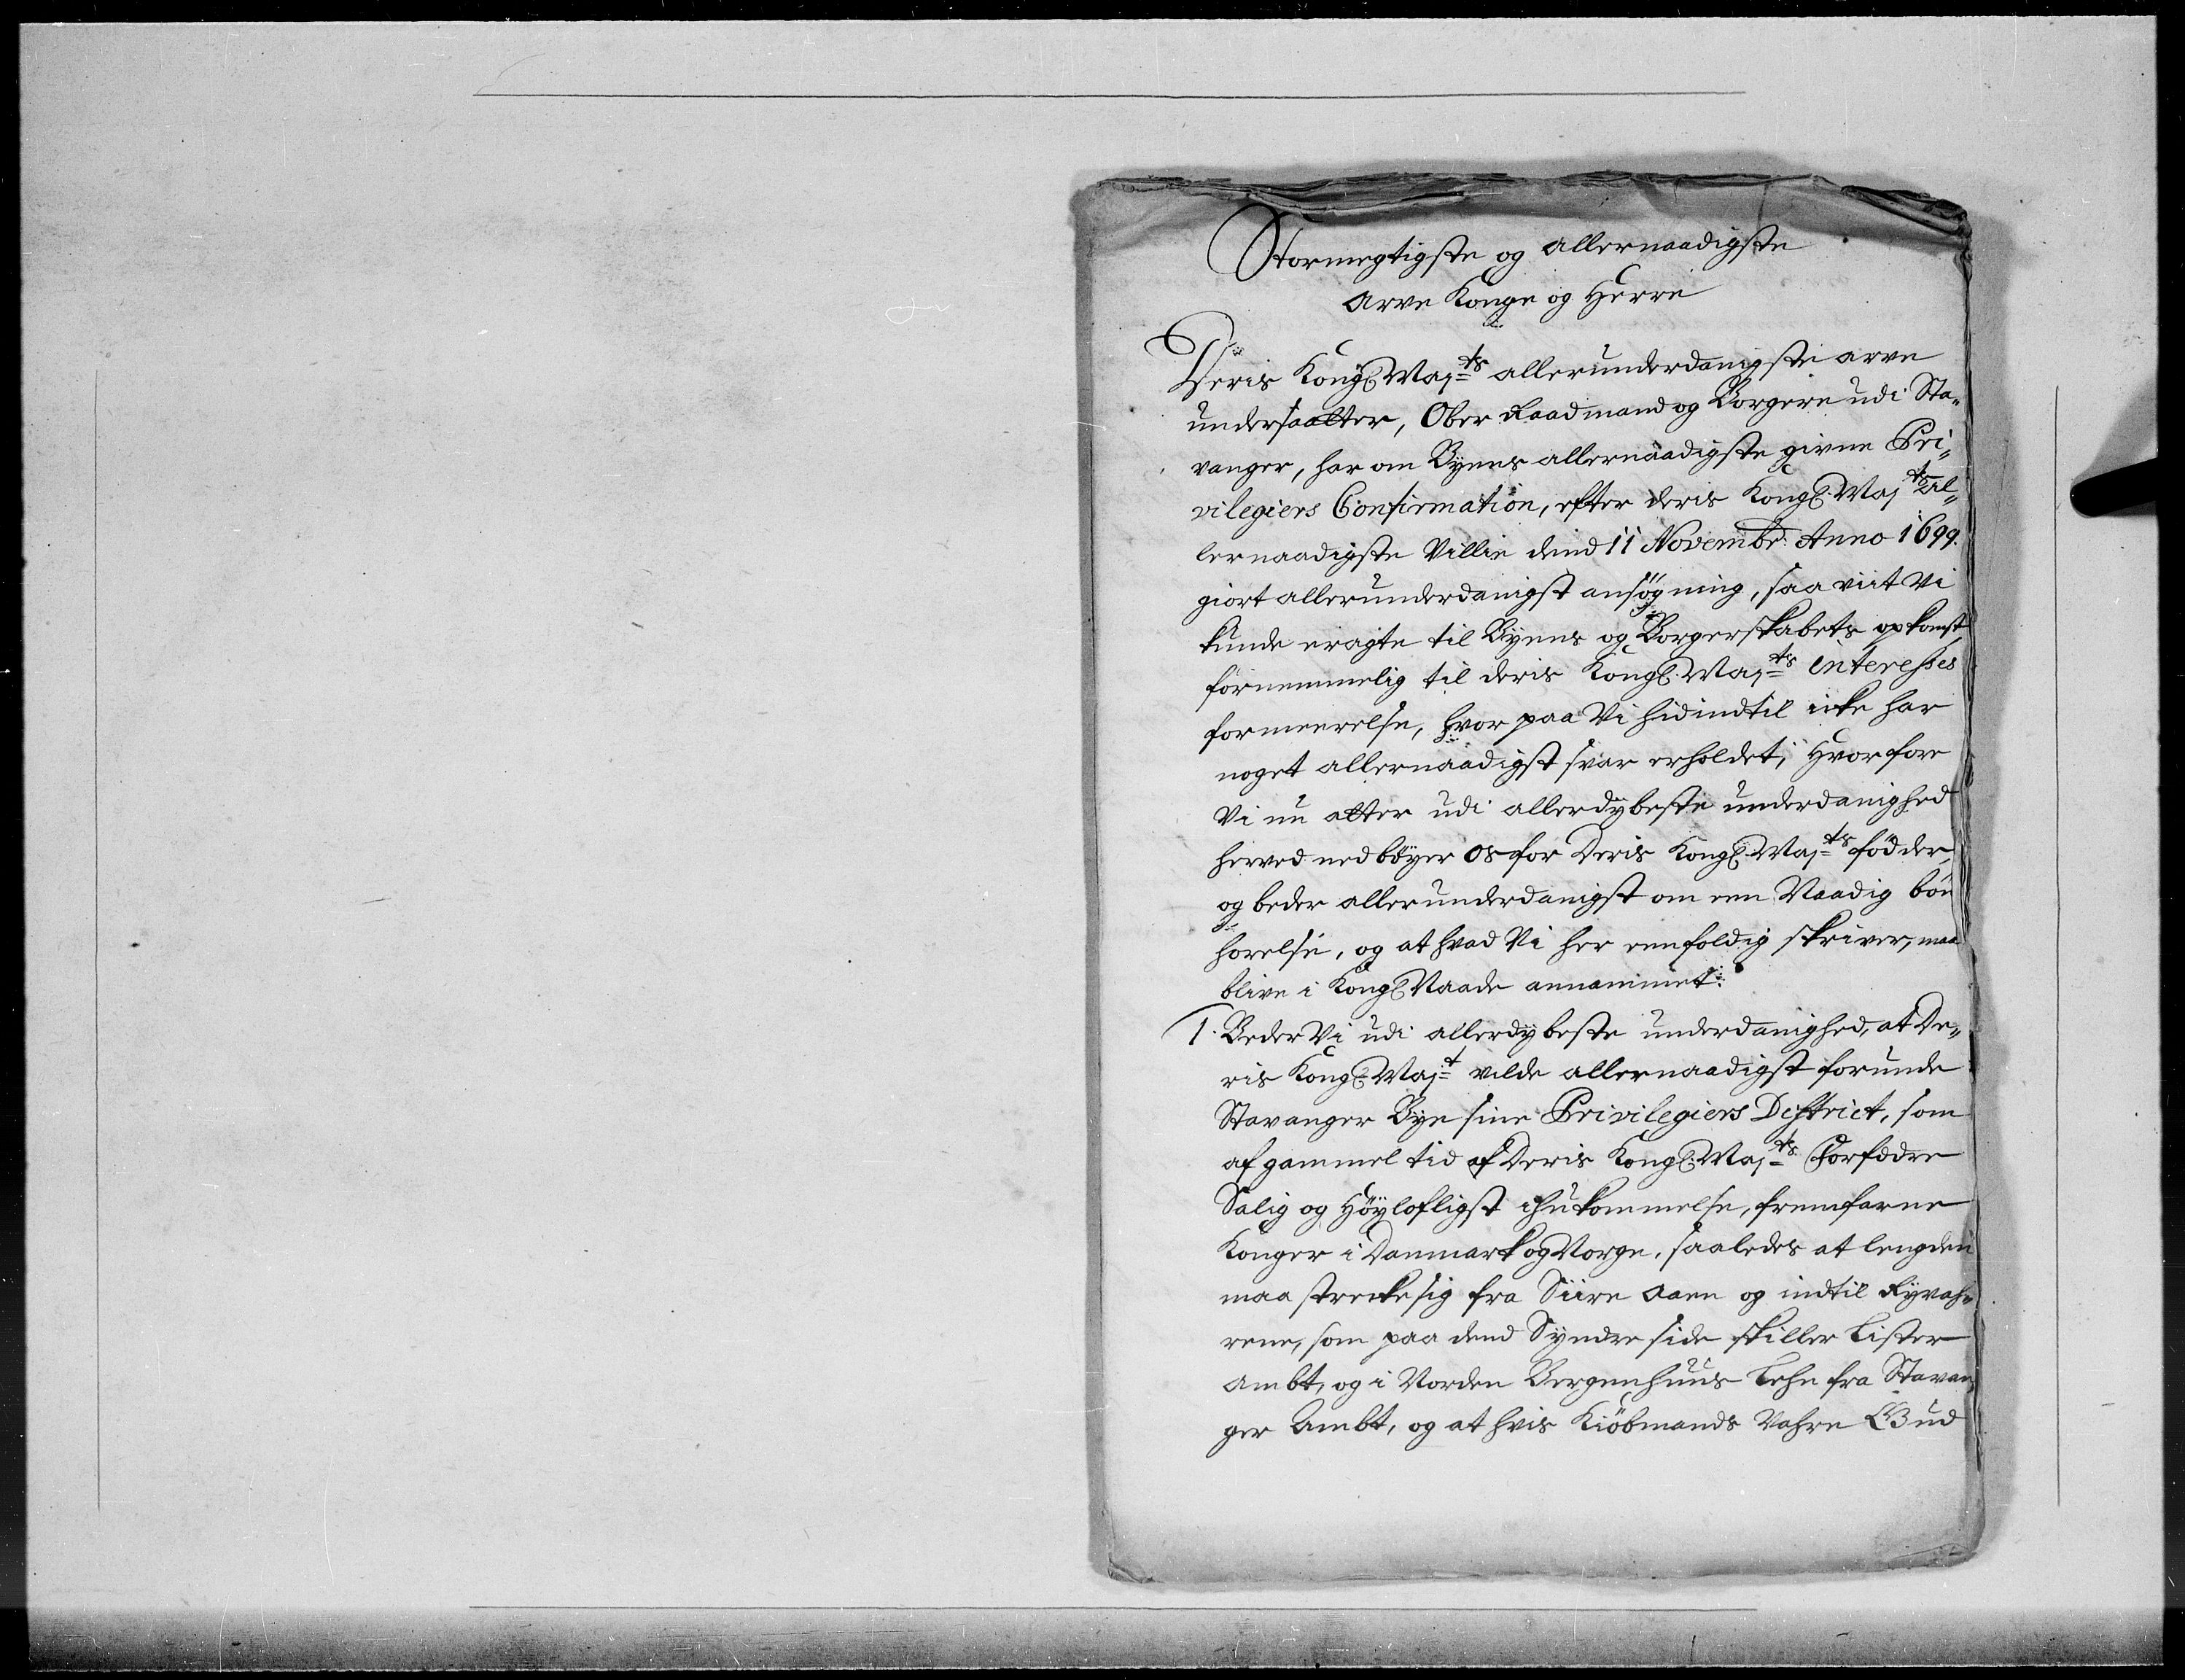 Stormegtigste og allernaadigste
Arve Konge og Herre
Deris Kongl. Maj:ts allerunderdanigste arve
undersaatter, Ober Raadmand og Borgere udi Sta„
vanger, har om Byens allernaadigste givne Pri„
vilegiers Confirmation, efter deris Kongl. Maj:ts al„
lernaadigste Villie dend 11 Novembr: Anno 1699.
giort allerunderdanigst ansøgning, saa viit Vi
kunde eragte til Byens og Borgerskabets opkomst
fornemmelig til deris Kongl. Maj:ts interesses
formeerelse, hvor paa Vi hidindtil icke har
noget allernaadigst svar erholdet; Hvorfore
Vi nu atter udi allerdybeste underdanighed
herved nedbøyer os for Deris Kongl. Maj:ts fødder,
og beder allerunderdanigst om een Naadig bön
horelse, og at hvad Vi her eenfoldig skriver, maa
blive i Kongl. Naade annammet:
1. Beder Vi udi allerdybeste underdanighed, at De„
ris Kongl. Maj:t vilde allernaadigst forunde
Stavanger Bye sine Privilegiers District, som
af gammel tid af Deris Kongl. Maj:ts Forfædre
Salig og Høyloflligst ihukommelse, fremfarne
Konger i Danmark og Norge, saaledes at lengden
maa strecke sig fra Siire Aaen og indtil Ryvah„
rene, som paa dend Syndre side skiller Lister
Ambt, og i Norden Bergenhuus Lehn fra Stavan„
ger Ambt, og at hvis Kiöbmands Vahre Bud